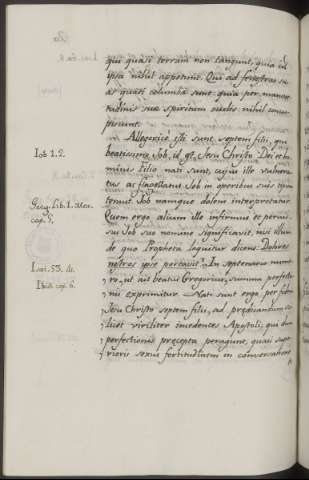 qui quasi terram non tangunt, quia in
ipsa nihil appetunt. Qui ad fenestras su-
as quasi columbæ sunt, quia per mansue-
tudinis suæ spiritum sordis nihil concu-
piscunt.
Allegorice isti sunt septem filii, qui
beatissimo Job, id est, Jesu Christo Dei et ho-
minis Filio nati sunt, cujus ille vulnera-
tus ac flagellatus Job in operibus suis typum
tenuit. Job namque dolens interpretatur.
Quem ergo alium ille infirmus et percus-
sus Job suo nomine significavit, nisi illum
de quo Propheta loquitur dicens: Dolores
nostros ipse portavit? In septenario nume-
ro, ut ait beatus Gregorius, summa perfectio-
nis exprimitur. Nati sunt ergo per fidem
Jesu Christo septem filii, ad prædicandum sci-
licet viriliter incedentes Apostoli; qui dum
perfectionis præcepta peragunt, quasi supe-
rioris sexus fortitudinem in conversatione
Iob 1.2.
Greg. Lib. 1. Mor.
cap. 5.
Isai. 53. 4.
Ibid. cap. 6.